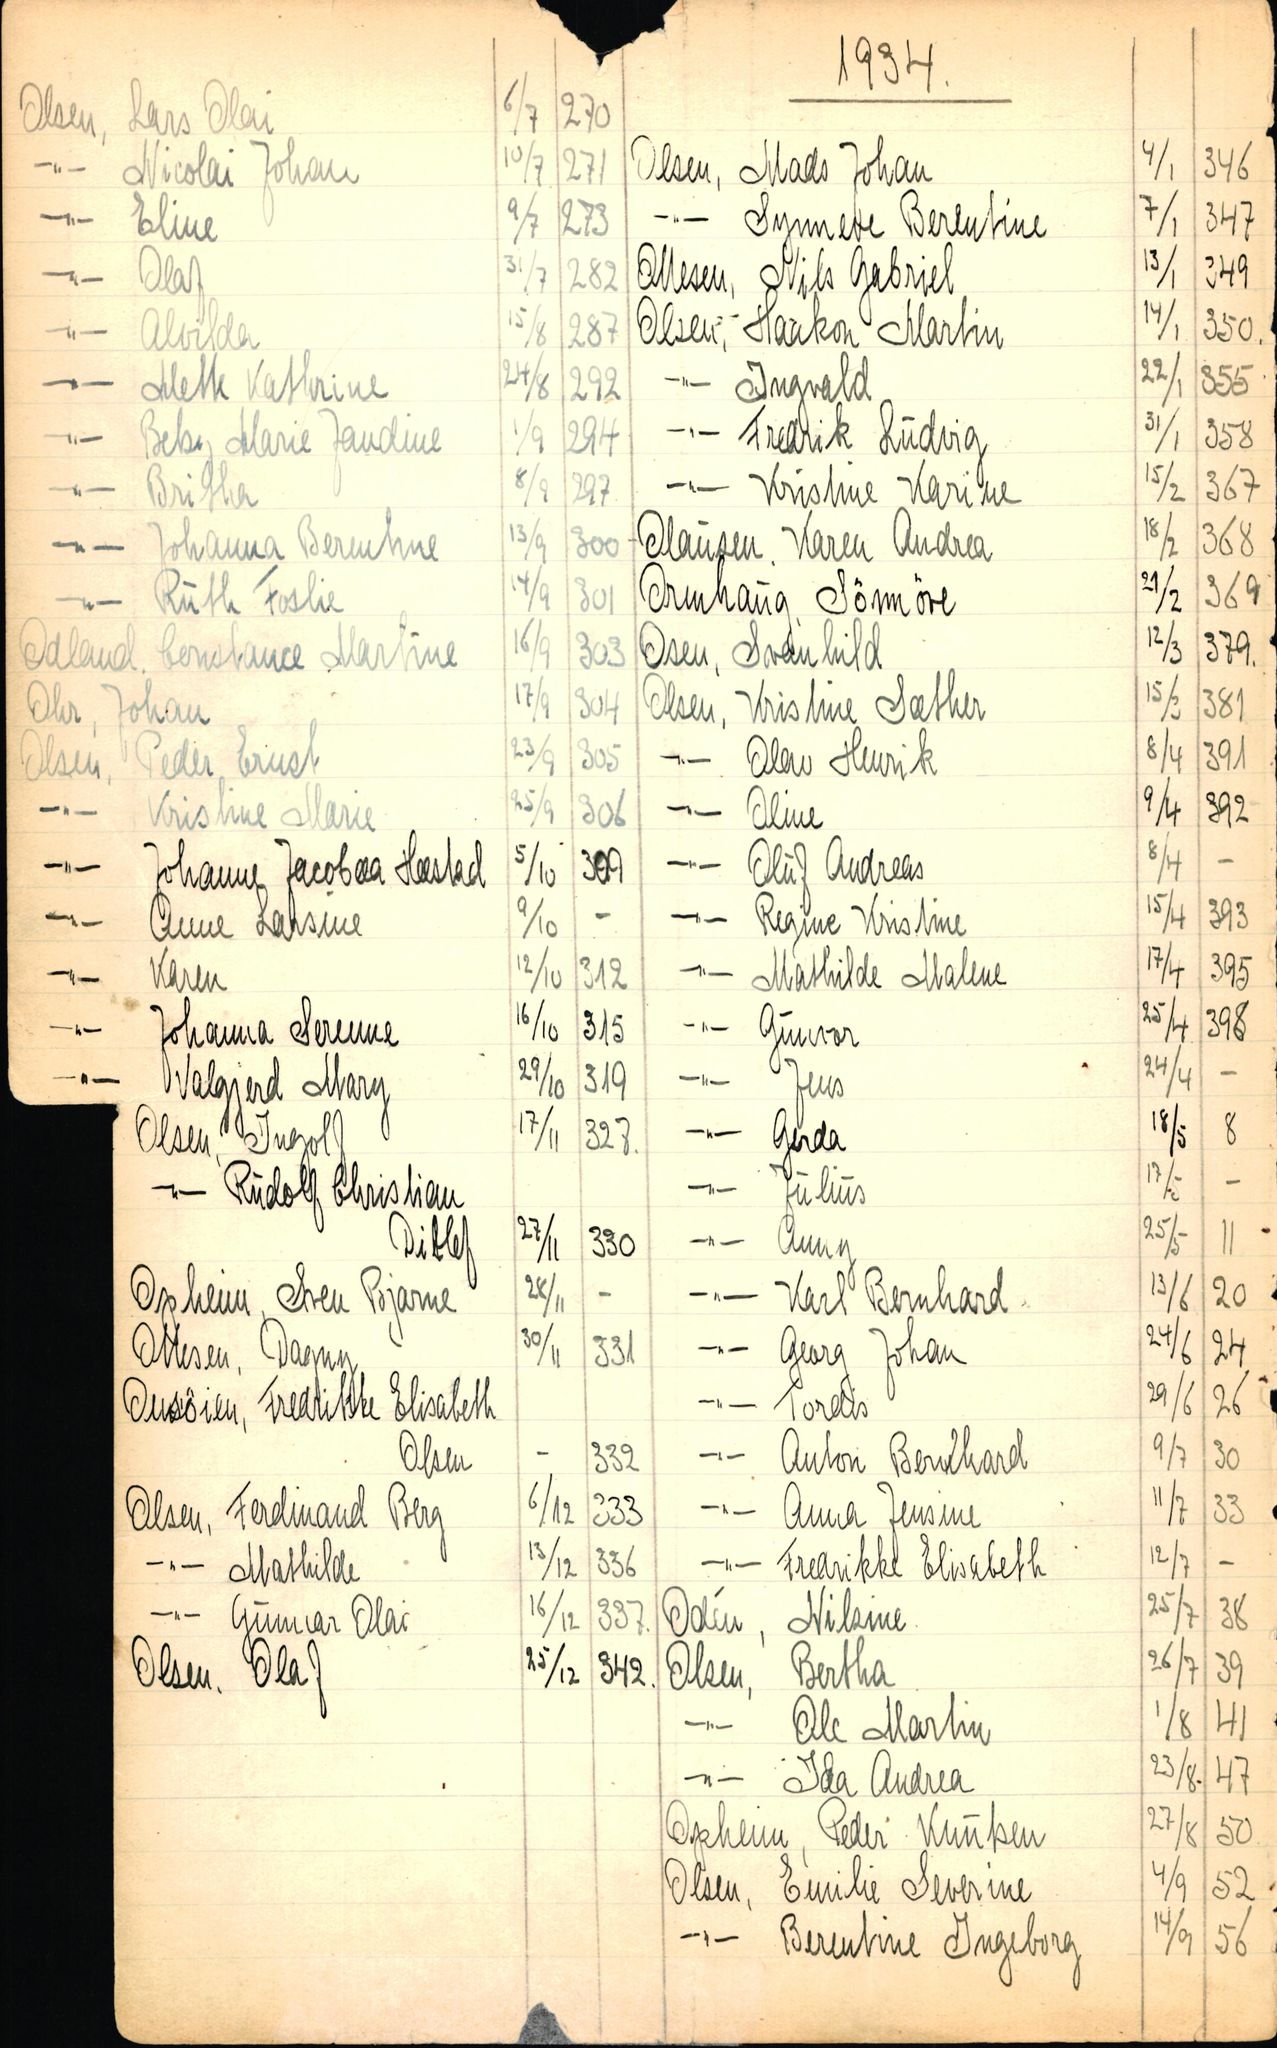 Olsen, Lars Olai 6/7 270
-"- Nicolai Johan 10/7 271
-"- Eline 9/7 273
-"- Olaf 31/7 282
-"- Alvilda 15/8 287
-"- Mette Kathrine 24/8 292
-"- Betsy Marie Jandine 1/9 294
-"- Britha 8/9 297
-"- Johanna Berentine 13/9 300
-"- Ruth Foslie 14/9 301
Odland. Constance Martine 16/9 303
Ohr, Johan 17/9 304
Olsen, Peder Ernst 23/9 305
-"- Kristine Marie 25/9 306
-"- Johanne Jacobæa Hæstad 5/10 309
-"- Anne Larsine 9/10 -
-"- Karen 12/10 312
-"- Johanna Serenne 16/10 315
-"- Valgjerd Mary 29/10 319
Olsen, Ingolf 17/11 327.
-"- Rudolf Christian
Ditlef 27/11 330
Opheim, Sven Bjarne 28/11 -
Ottesen, Dagny 30/11 331
Onsöien, Fredrikke Elisabeth
Olsen - 332
Olsen, Ferdinand Berg 6/12 333
-"- Mathilde 13/12 336
-"- Gunnar Olai 16/12 337.
Olsen. Olaf 25/12 342.
1934.
Olsen, Mads Johan 4/1 346
-"- Synneve Berentine 7/1 347
Ottesen, Nils Gabriel 13/1 349
Olsen, Haakon Martin 14/1 350.
-"- Ingvald 22/1 355
-"- Fredrik Ludvig 31/1 358
-"- Kristine Karine 15/2 367
Olausen, Karen Andrea 18/2 368
Ormhaug, Sönmöve 21/2 369
Osen, Svanhild 12/3 379.
Olsen, Kristine Sæther 15/3 381
-"- Olav Henrik 8/4 391
-"- Oline 9/4 392
-"- Oluf Andreas 8/4 -
-"- Regine Kristine 15/4 393
-"- Mathilde Malene 17/4 395
-"- Gunvor 25/4 398
-"- Jens 24/4 -
-"- Gerda 18/5 8
-"- Julius 17/5 -
-"- Anny 25/5 11
-"- Karl Bernhard 13/6 20
-"- Georg Johan 24/6 24
-"- Tordis 29/6 26
-"- Anton Berndhard 9/7 30
-"- Anna Jensine 11/7 33
-"- Fredrikke Elisabeth 12/7 -
Odén, Nilsine 25/7 38
Olsen, Bertha 26/7 39
-"- Ole Martin 1/8 41
-"- Ida Andrea 23/8. 47
Opheim, Peder Knutsen 27/8 50
Olsen, Emilie Severine 4/9 52
-"- Berentine Ingeborg 14/9 56